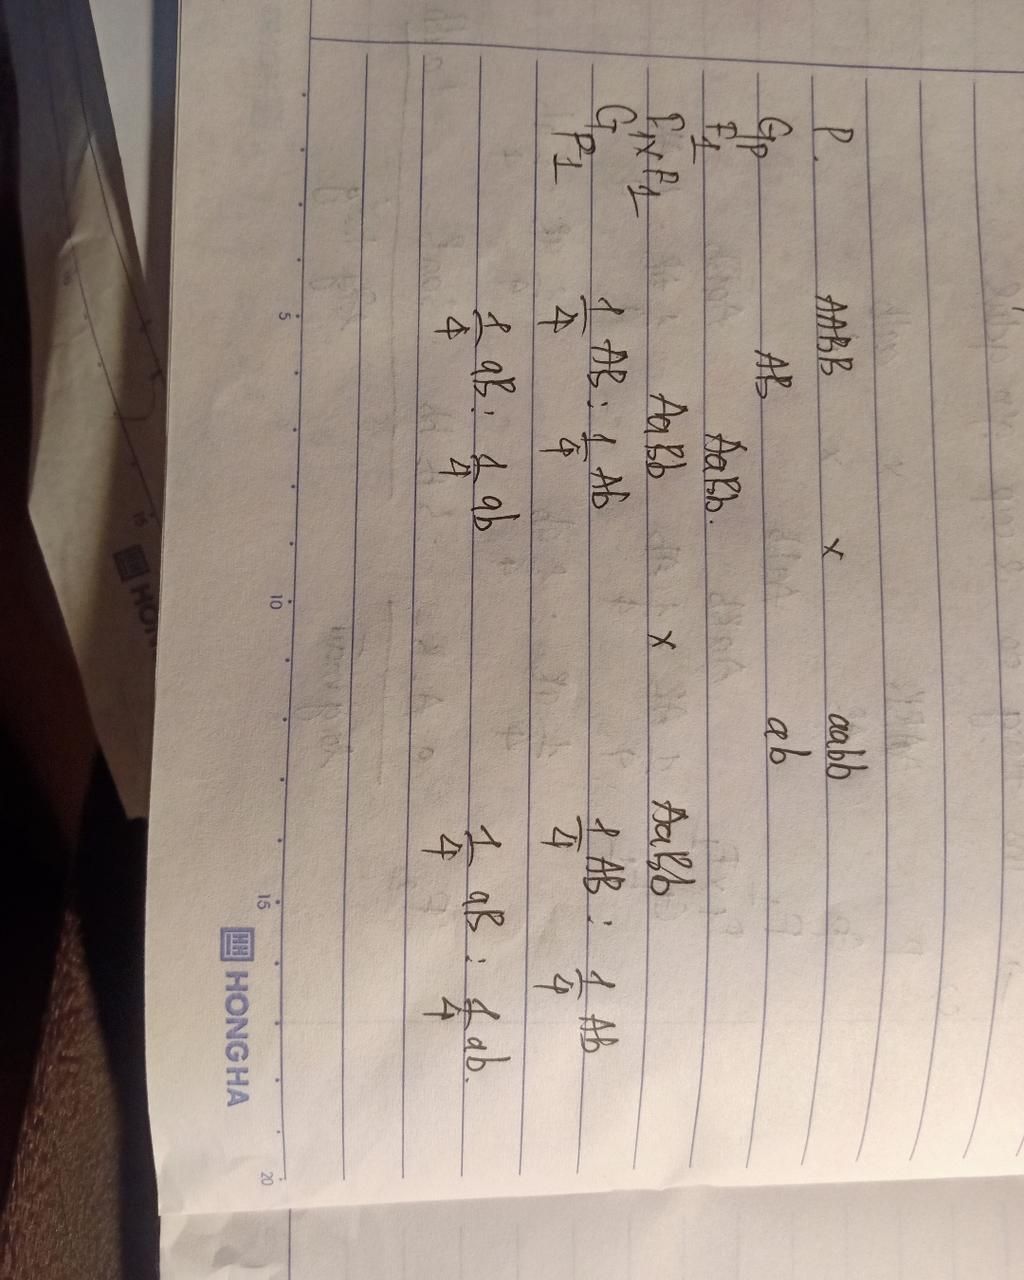 P. AABB x aabb
GP AB ab
F1 AaBb.
F1 x F1 AaBb x AaBb
GF1 1/4 AB : 1/4 Ab 1/4 AB : 1/4 Ab
1/4 aB : 1/4 ab 1/4 aB : 1/4 ab.
5 10 15 20
HONG HA
15
HON